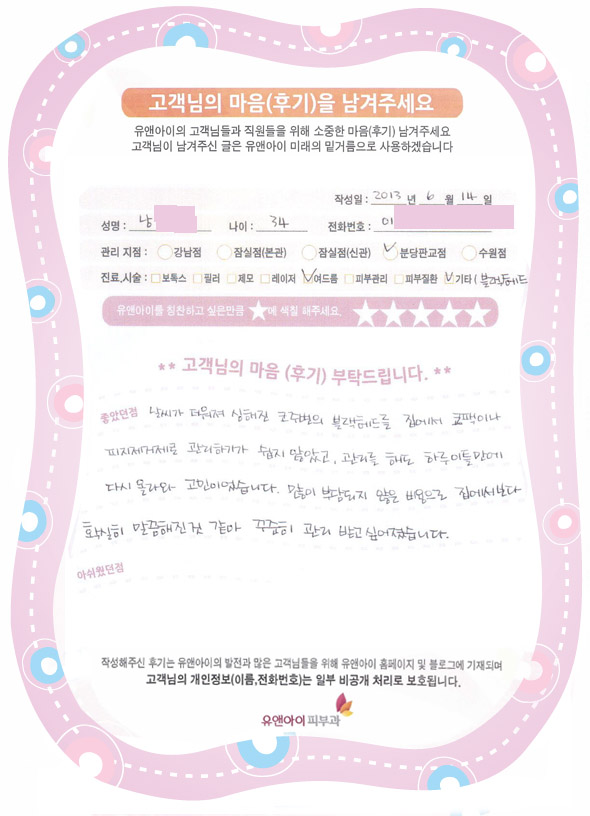 고객님의 마음(후기)을 남겨주세요
유앤아이의 고객님들과 직원들을 위해 소중한 마음(후기) 남겨주세요
고객님이 남겨주신 글은 유앤아이 미래의 밑거름으로 사용하겠습니다
작성일 : 2013 년 6 월 14 일
성명 : 나이 : 34 전화번호 : 01
관리 지점 : 강남점 잠실점(본관) 잠실점(신관) 분당판교점 수원점
진료,시술 : 보톡스 필러 제모 레이저 여드름 피부관리 피부질환 기타 ( 블랙헤드
유앤아이를 칭찬하고 싶은만큼 ★에 색칠 해주세요.
** 고객님의 마음 (후기) 부탁드립니다. **
좋았던점 날씨가 더워져 심해진 코주변의 블랙헤드를 집에서 코팩이나
피지제거제로 관리하기가 쉽지 않았고, 관리를 해도 하루이틀만에
다시 올라와 고민이었습니다. 많이 부담되지 않은 비용으로 집에서보다
확실히 말끔해진것 같아 꾸준히 관리 받고싶어졌습니다.
아쉬웠던점
작성해주신 후기는 유앤아이의 발전과 많은 고객님들을 위해 유앤아이 홈페이지 및 블로그에 기재되며
고객님의 개인정보(이름,전화번호)는 일부 비공개 처리로 보호됩니다.
유앤아이피부과